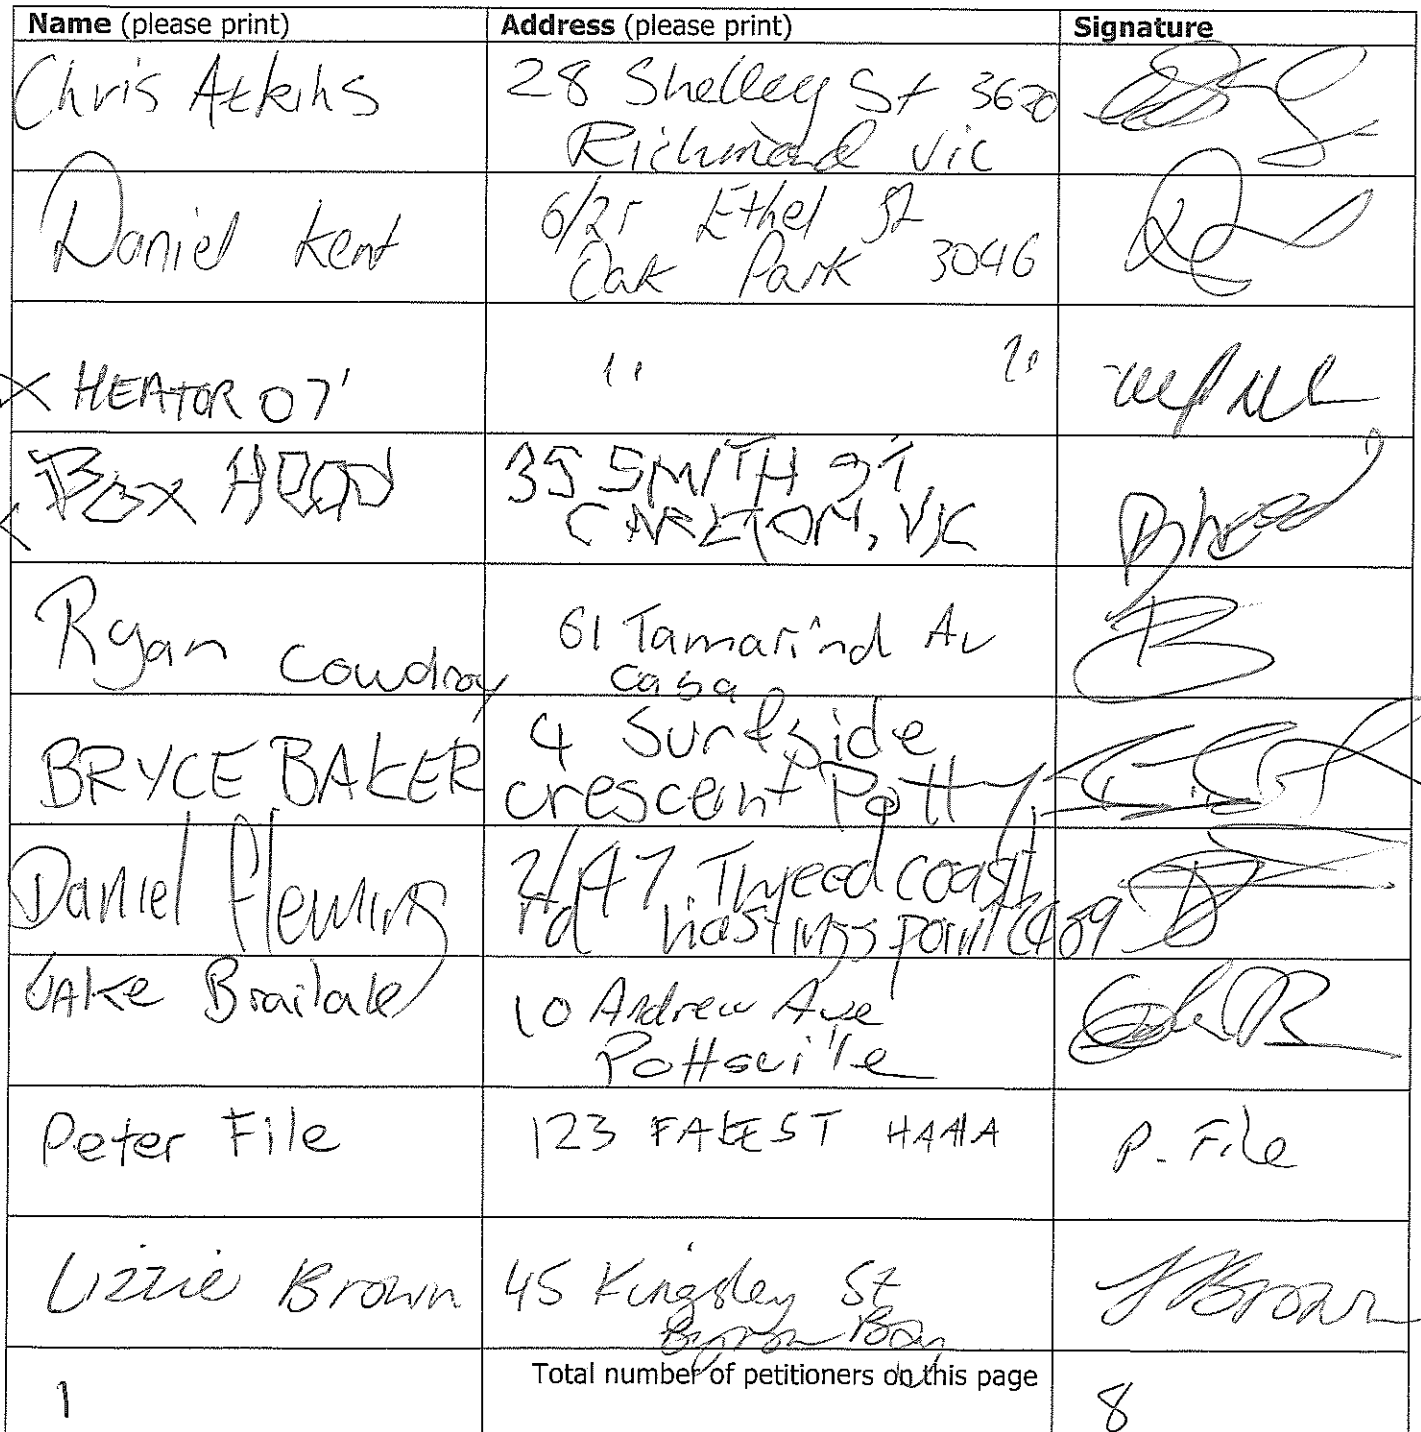 Name (please print) Address (please print) Signature
Chris Atkins 28 Shelley St 3620
Richmond Vic
Daniel Kent 6/25 Ethel St
Oak Park 3046
X HEATOR 07' " "
BOX HEAD 35 SMITH ST,
CARLTON, VIC
Bhead
Ryan Cowdroy 61 Tamarind Av
Casa
BRYCE BAKER 4 Surfside
crescent Potty
Daniel Fleming 2/47 Tweed coast
rd hastings point 2489
JAKe Brailale 10 Andrew Ave
Pottsville
Peter File 123 FAKE ST HAAA P. File
Lizzie Brown 45 Kingsley St LBrown
Byron Bay
Total number of petitioners on this page
1 8